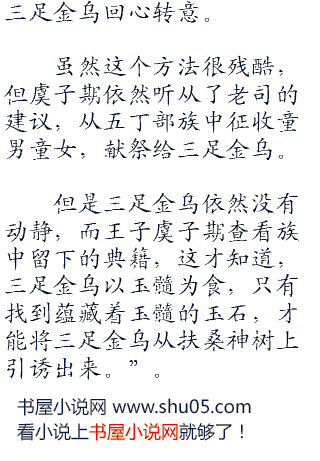 三足金乌回心转意。
虽然这个方法很残酷，
但虞子期依然听从了老司的
建议，从五丁部族中征收童
男童女，献祭给三足金乌。
但是三足金乌依然没有
动静，而王子虞子期查看族
中留下的典籍，这才知道，
三足金乌以玉髓为食，只有
找到蕴藏着玉髓的玉石，才
能将三足金乌从扶桑神树上
引诱出来。”。
书屋小说网 www.shu05.com
看小说上书屋小说网就够了！